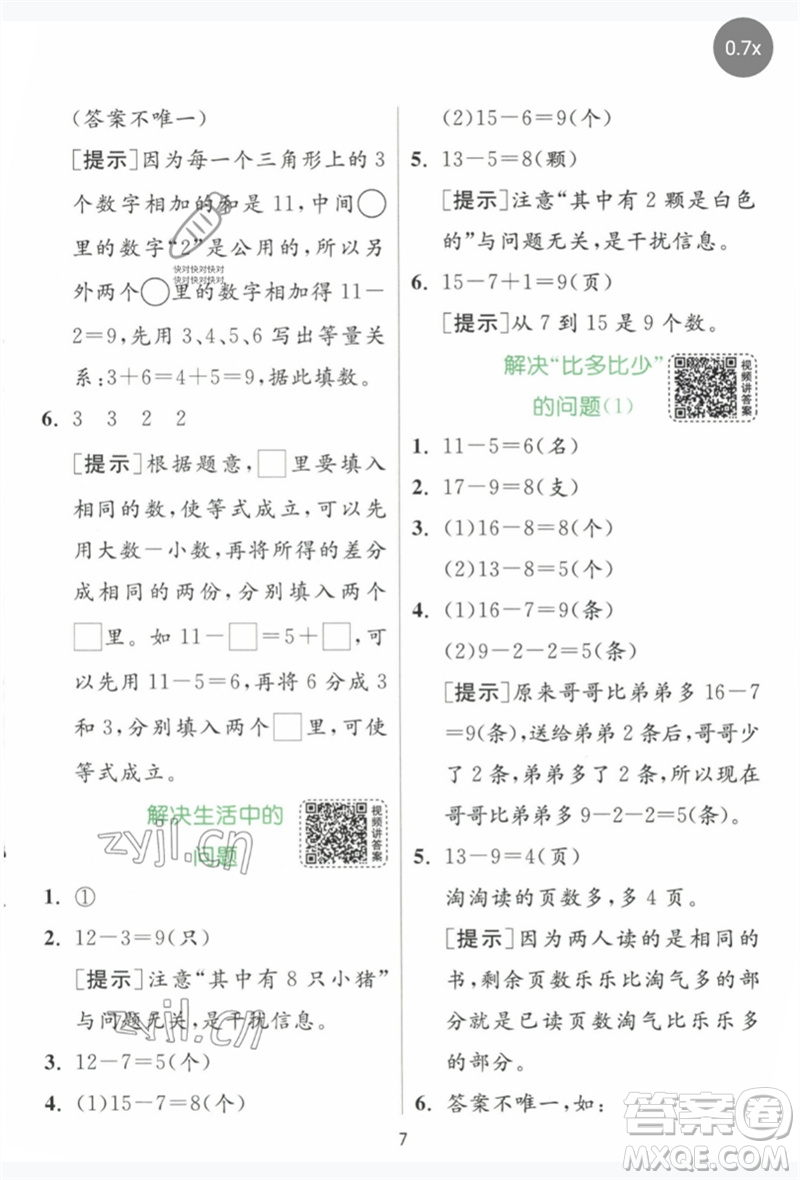 0.7x
(答案不唯一)
[提示]因为每一个三角形上的3
个数字相加的和是11,中间○
里的数字“2”是公用的,所以另
外两个○里的数字相加得11－
2＝9,先用3、4、5、6写出等量关
系:3＋6＝4＋5＝9,据此填数。
快对快对快对
快对快对快对
6. 3 3 2 2
[提示]根据题意,□里要填入
相同的数,使等式成立,可以先
用大数－小数,再将所得的差分
成相同的两份,分别填入两个
□里。如11－□＝5＋□,可
以先用11－5＝6,再将6分成3
和3,分别填入两个□里,可使
等式成立。
解决生活中的
问题
视频讲答案
zyjl.cn
1. ①
2. 12－3＝9(只)
[提示]注意“其中有8只小猪”
与问题无关,是干扰信息。
zyjl.cn
3. 12－7＝5(个)
4. (1)15－7＝8(个)
(2)15－6＝9(个)
5. 13－5＝8(颗)
[提示]注意“其中有2颗是白色
的”与问题无关,是干扰信息。
6. 15－7＋1＝9(页)
[提示]从7到15是9个数。
解决“比多比少”
的问题(1)
视频讲答案
1. 11－5＝6(名)
2. 17－9＝8(支)
3. (1)16－8＝8(个)
(2)13－8＝5(个)
4. (1)16－7＝9(条)
(2)9－2－2＝5(条)
[提示]原来哥哥比弟弟多16－7
＝9(条),送给弟弟2条后,哥哥少
了2条,弟弟多了2条,所以现在
哥哥比弟弟多9－2－2＝5(条)。
5. 13－9＝4(页)
淘淘读的页数多,多4页。
[提示]因为两人读的是相同的
书,剩余页数乐乐比淘气多的部
分就是已读页数淘气比乐乐多
的部分。
6. 答案不唯一,如:
7
答案圈
MXQE.COM